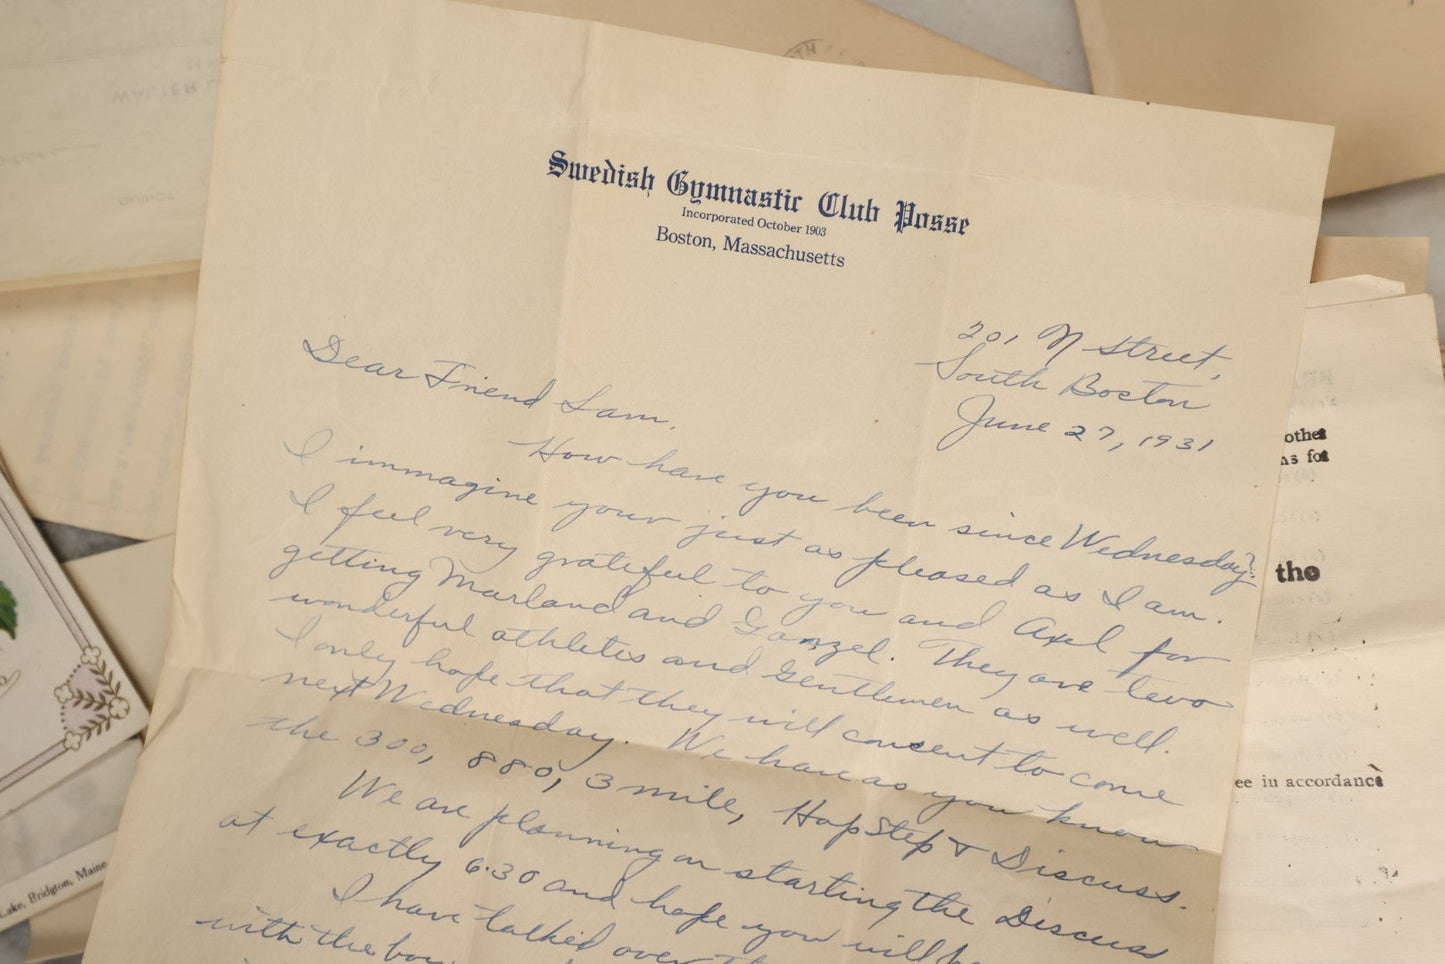 Swedish Gymnastic Club Posse
Incorporated October 1903
Boston, Massachusetts
201 N Street,
South Boston
June 27, 1931
Dear Friend Sam,
How have you been since Wednesday?
I immagine your just as pleased as I am.
I feel very grateful to you and Axel for
getting Marland and Ganzel. They are two
wonderful athletes and Gentlemen as well.
I only hope that they will consent to come
next Wednesday. We have as you know
the 300, 880, 3 mile, Hop Step & Discuss.
We are planning on starting the Discuss
at exactly 6:30 and hope you will
I have talked over
with the
WALTER
QUINCY,
Lake, Bridgton, Maine
other
ns for
the
ee in accordance